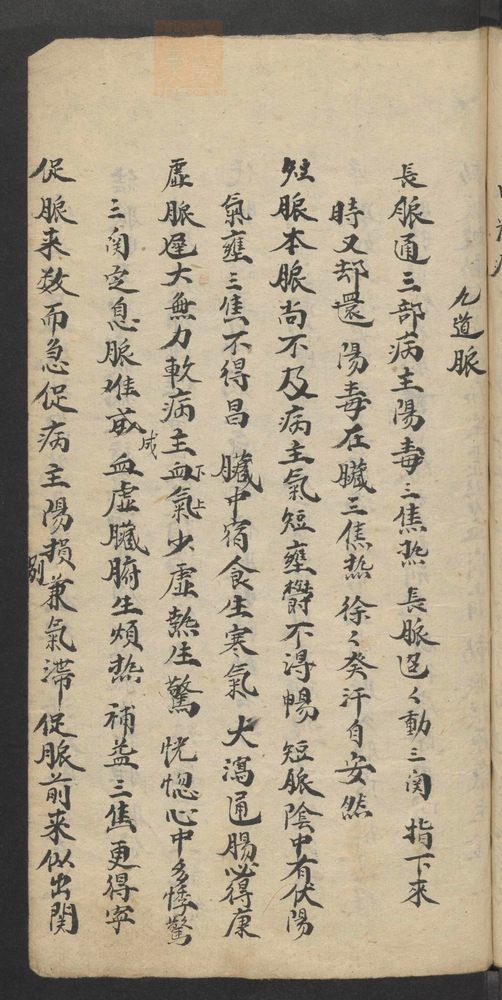 九道脈
長脈通三部病主陽毒三焦热 長脈迢々動三関 指下来
時又却還 陽毒在臟三焦热 徐々発汗自安然
短脈本脈尚不及病主氣短壅欝不得暢 短脈陰中有伏陽
氣壅三焦不得昌 臟中宿食生寒氣 大瀉通腸必得康
虚脈遅大無力軟病主血氣少虚熱生驚 恍惚心中多悸驚
下上
三関定息脈难成血虚臟腑生煩热 補益三焦更得寧
成
促脈来数而急促病主陽損兼氣滞 促脈前来似出関
别